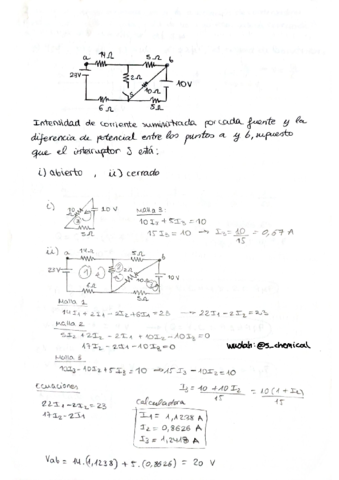 14Ω 5Ω
a b
23V 2Ω 10Ω 10V
S
6Ω 5Ω
Intensidad de corriente suministrada por cada fuente y la
diferencia de potencial entre los puntos a y b, supuesto
que el interruptor S está:
i) abierto , ii) cerrado
i)
10V
5Ω
Malla 3:
10I3 + 5I3 = 10
15I3 = 10 → I3 = 10/15 = 0,67 A
ii) a 14Ω 5Ω b
23V 1 10V
6Ω 5Ω
Malla 1
14I1 + 2I1 - 2I2 + 6I1 = 23 → 22I1 - 2I2 = 23
Malla 2
5I2 + 2I2 - 2I1 + 10I2 - 10I3 = 0
17I2 - 2I1 - 10I3 = 0
wuolah: @s_chemical
Malla 3
10I3 - 10I2 + 5I3 = 10 → 15I3 - 10I2 = 10
I3 = 10 + 10I2 / 15 = 10(1 + I2) / 15
Ecuaciones
22I1 - 2I2 = 23
17I2 - 2I1
Calculadora
I1 = 1,1238 A
I2 = 0,8626 A
I3 = 1,2418 A
Vab = 14·(1,1238) + 5·(0,8626) = 20 V